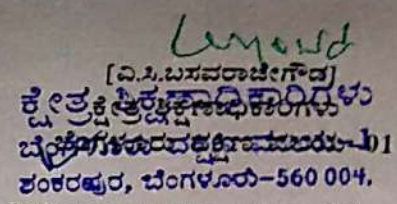 [ಎ.ಸಿ.ಬಸವರಾಜೇಗೌಡ]
ಕ್ಷೇತ್ರ ಶಿಕ್ಷಣಾಧಿಕಾರಿಗಳು
ಬೆಂಗಳೂರು ದಕ್ಷಿಣ ವಲಯ-01
ಶಂಕರಪುರ, ಬೆಂಗಳೂರು-560 004.